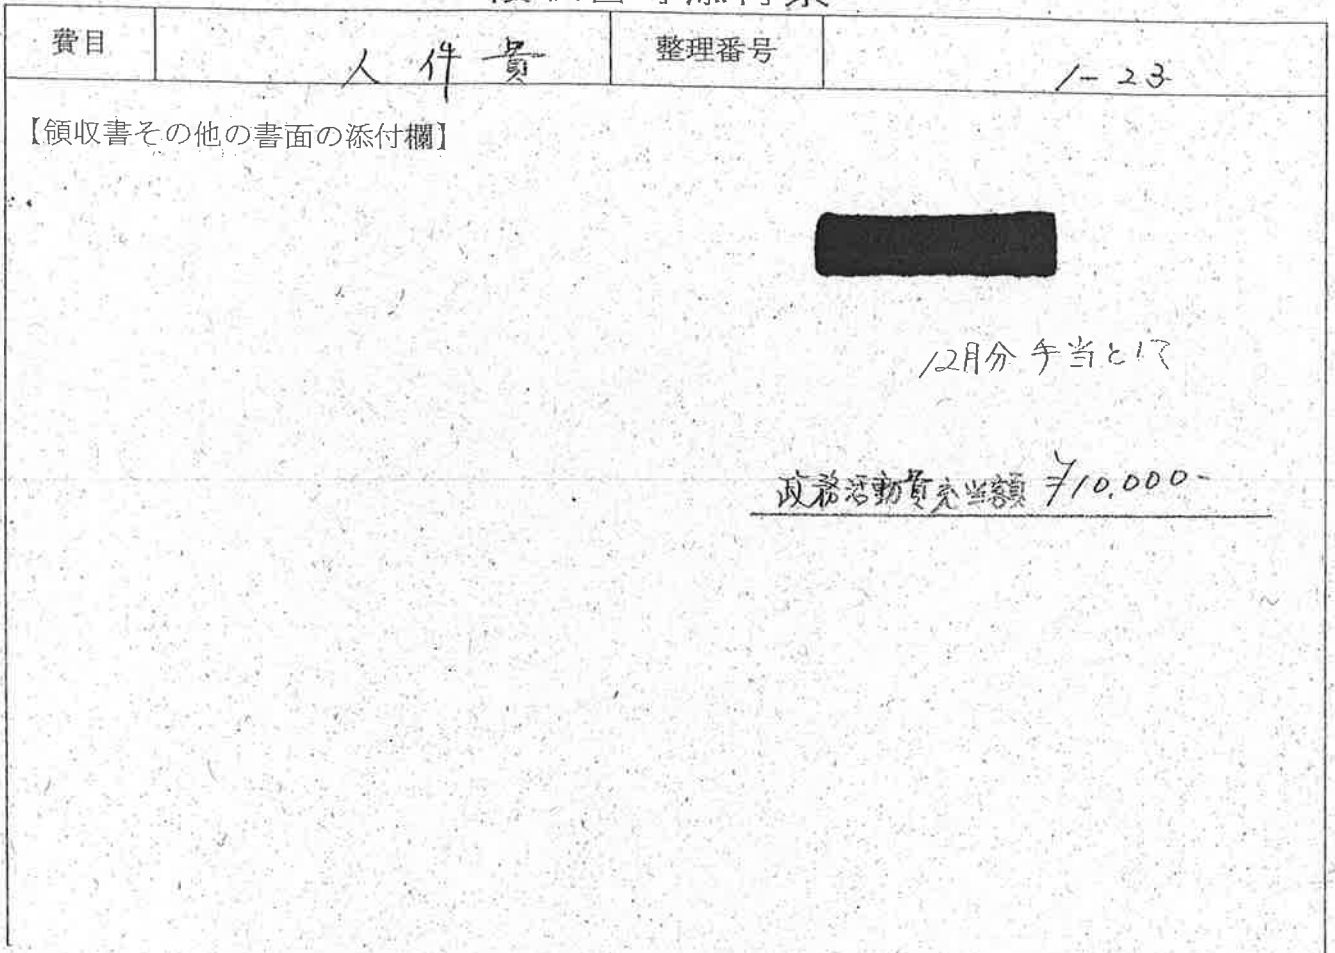 費目 人件費 整理番号 1-23
【領収書その他の書面の添付欄】
12月分 手当として
政務活動費充当額 ¥10,000-